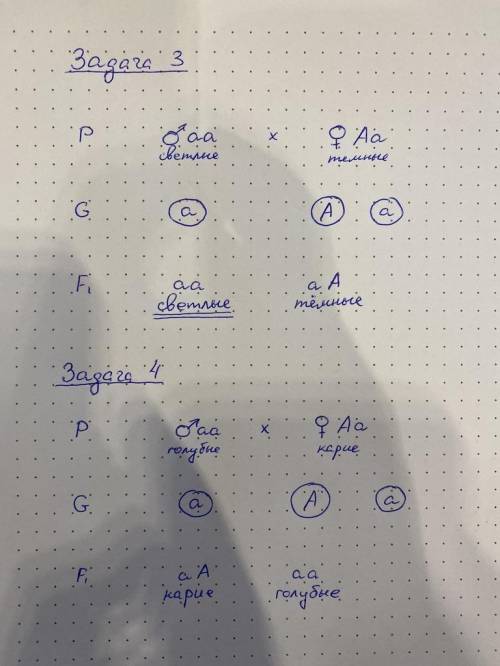 Задача 3
P ♂ aa x ♀ Aa
светлые темные
G a A a
F₁ aa aA
светлые тёмные
Задача 4
P ♂ aa x ♀ Aa
голубые карие
G a A a
F₁ aA aa
карие голубые